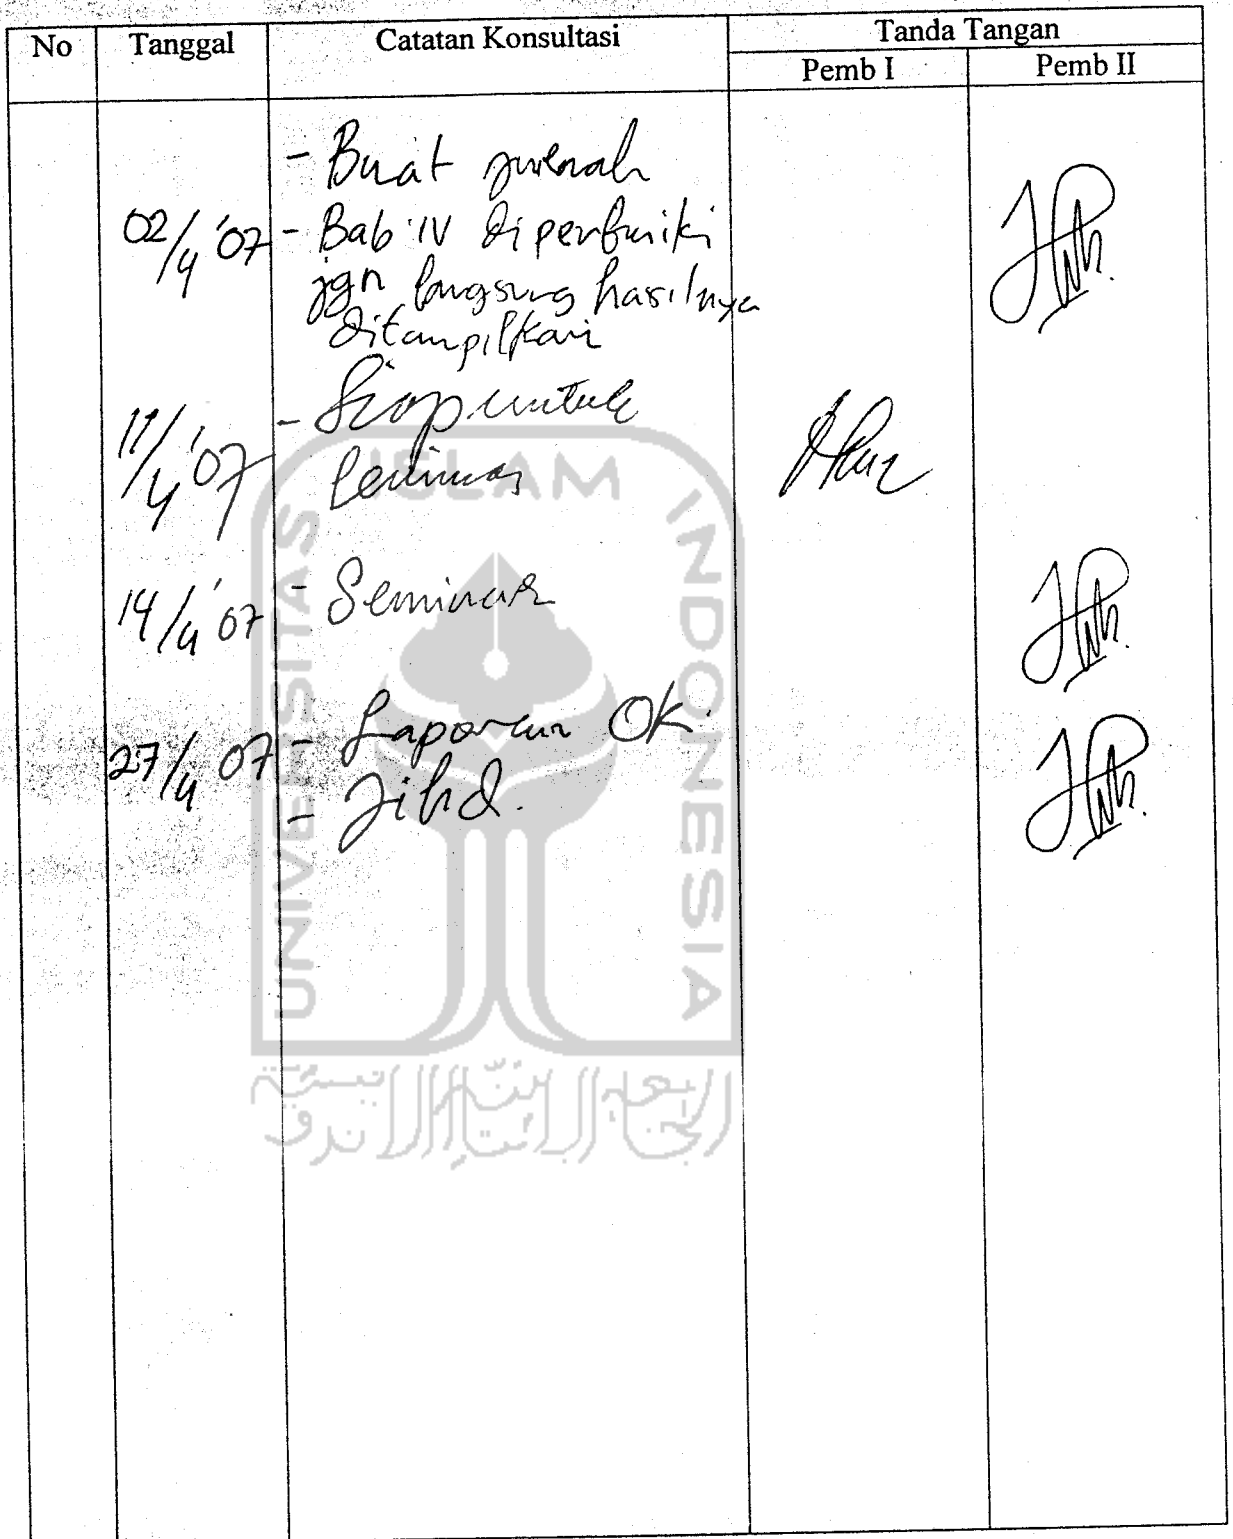 No Tanggal Catatan Konsultasi Tanda Tangan
Pemb I Pemb II
- Buat
02/4 '07 - Bab IV diperbaiki
jgn langsung hasilnya
ditampilkan
11/4 '07 - Siap untuk
14/4 '07 - Seminar
27/4 07 - Laporan Ok.
- Jilid.
UNIVERSITAS ISLAM INDONESIA